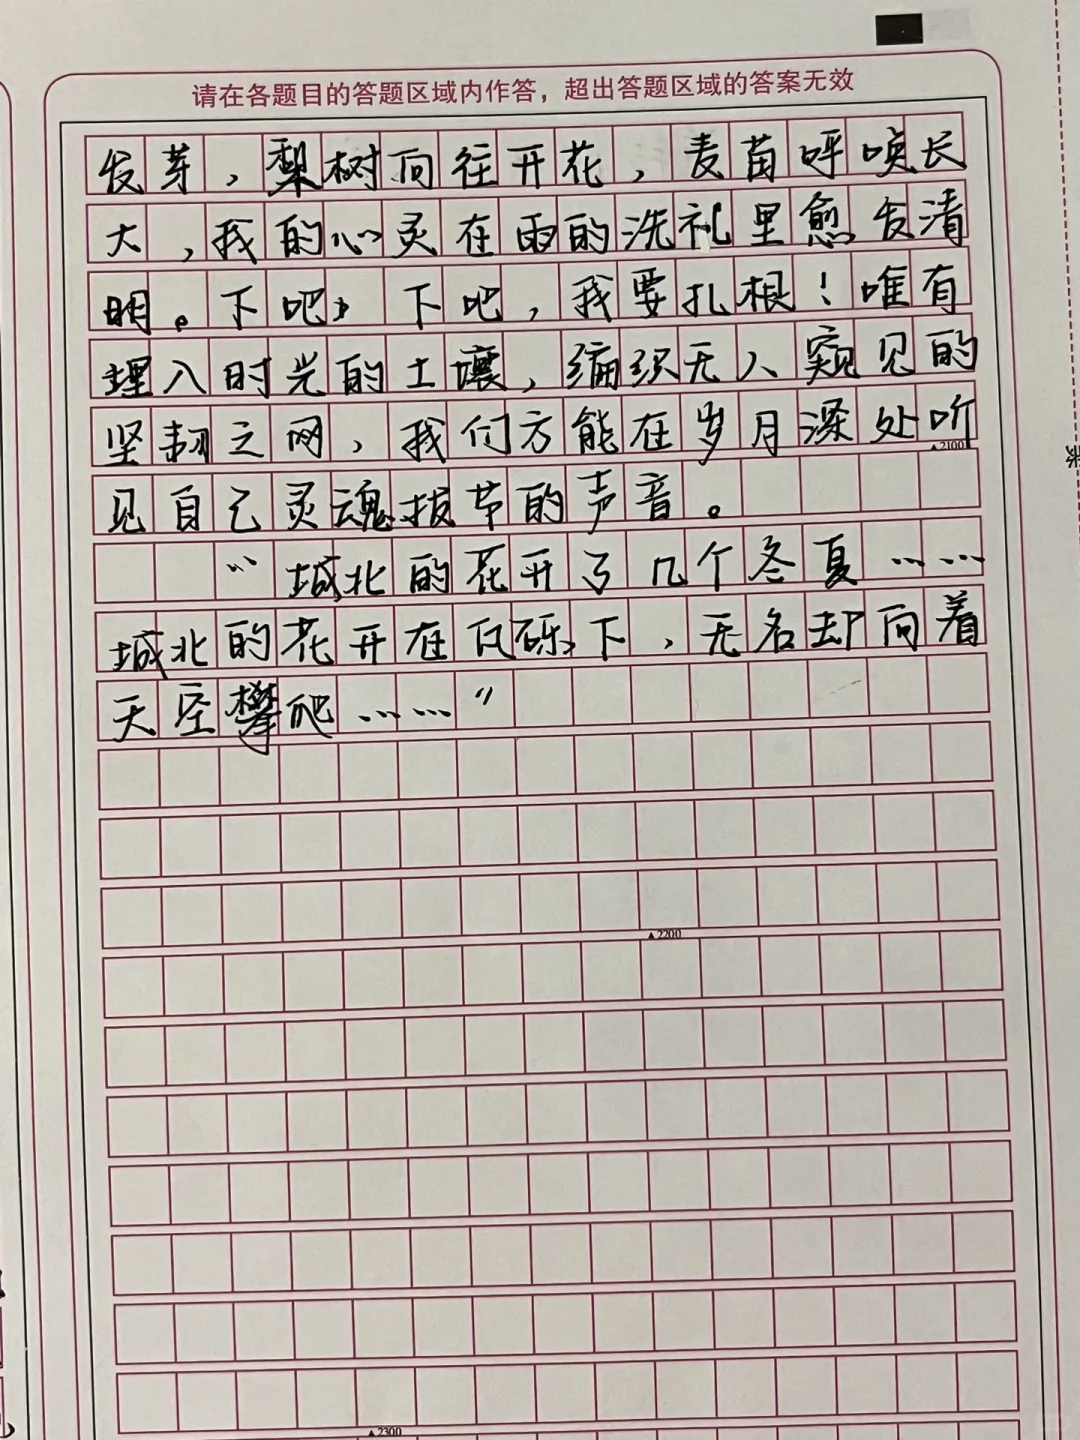 请在各题目的答题区域内作答，超出答题区域的答案无效
发芽，梨树向往开花，麦苗呼唤长
大，我的心灵在雨的洗礼里愈发清
明。下吧，下吧，我要扎根！唯有
埋入时光的土壤，编织无人窥见的
坚韧之网，我们方能在岁月深处听
▲2100
见自己灵魂拔节的声音。
“城北的花开了几个冬夏……
城北的花开在瓦砾下，无名却向着
天空攀爬……”
▲2200
▲2300